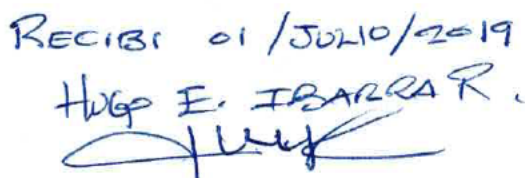 RECIBI 01/JULIO/2019
HUGO E. IBARRA R.